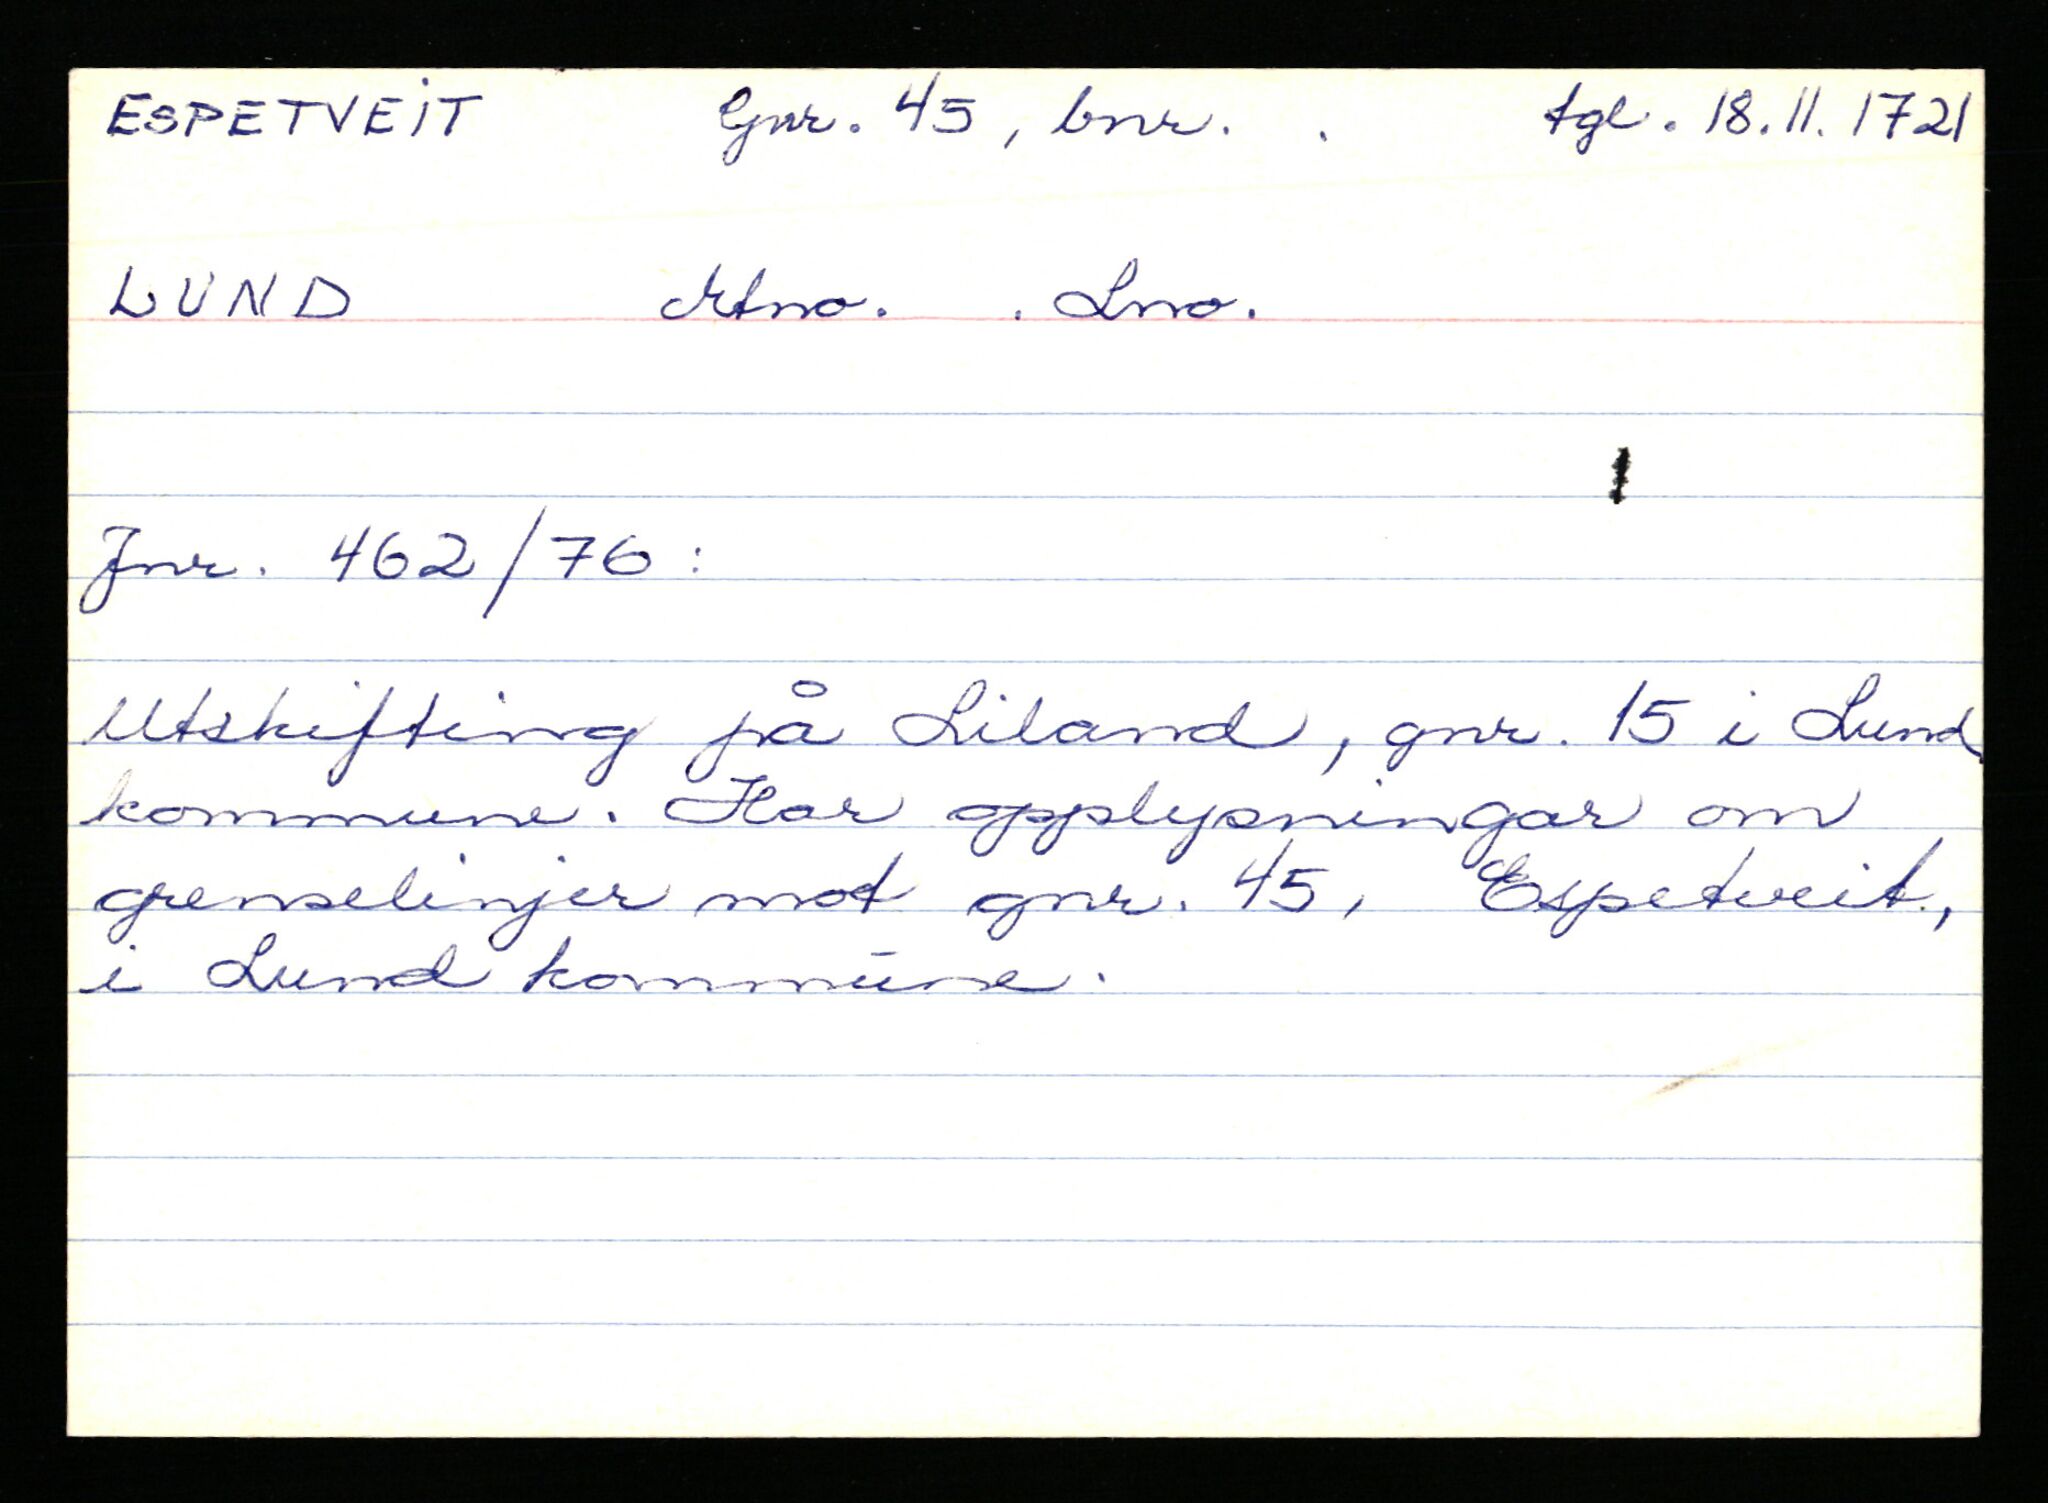 ESPETVEIT Gnr. 45, bnr. . tgl. 18.11.1721
LUND Mtno. . Lno.
Jnr. 462/76:
Utskifting på Liland, gnr. 15 i Lund
kommune. Har opplysningar om
grenselinjer mot gnr. 45, Espetveit,
i Lund kommune.